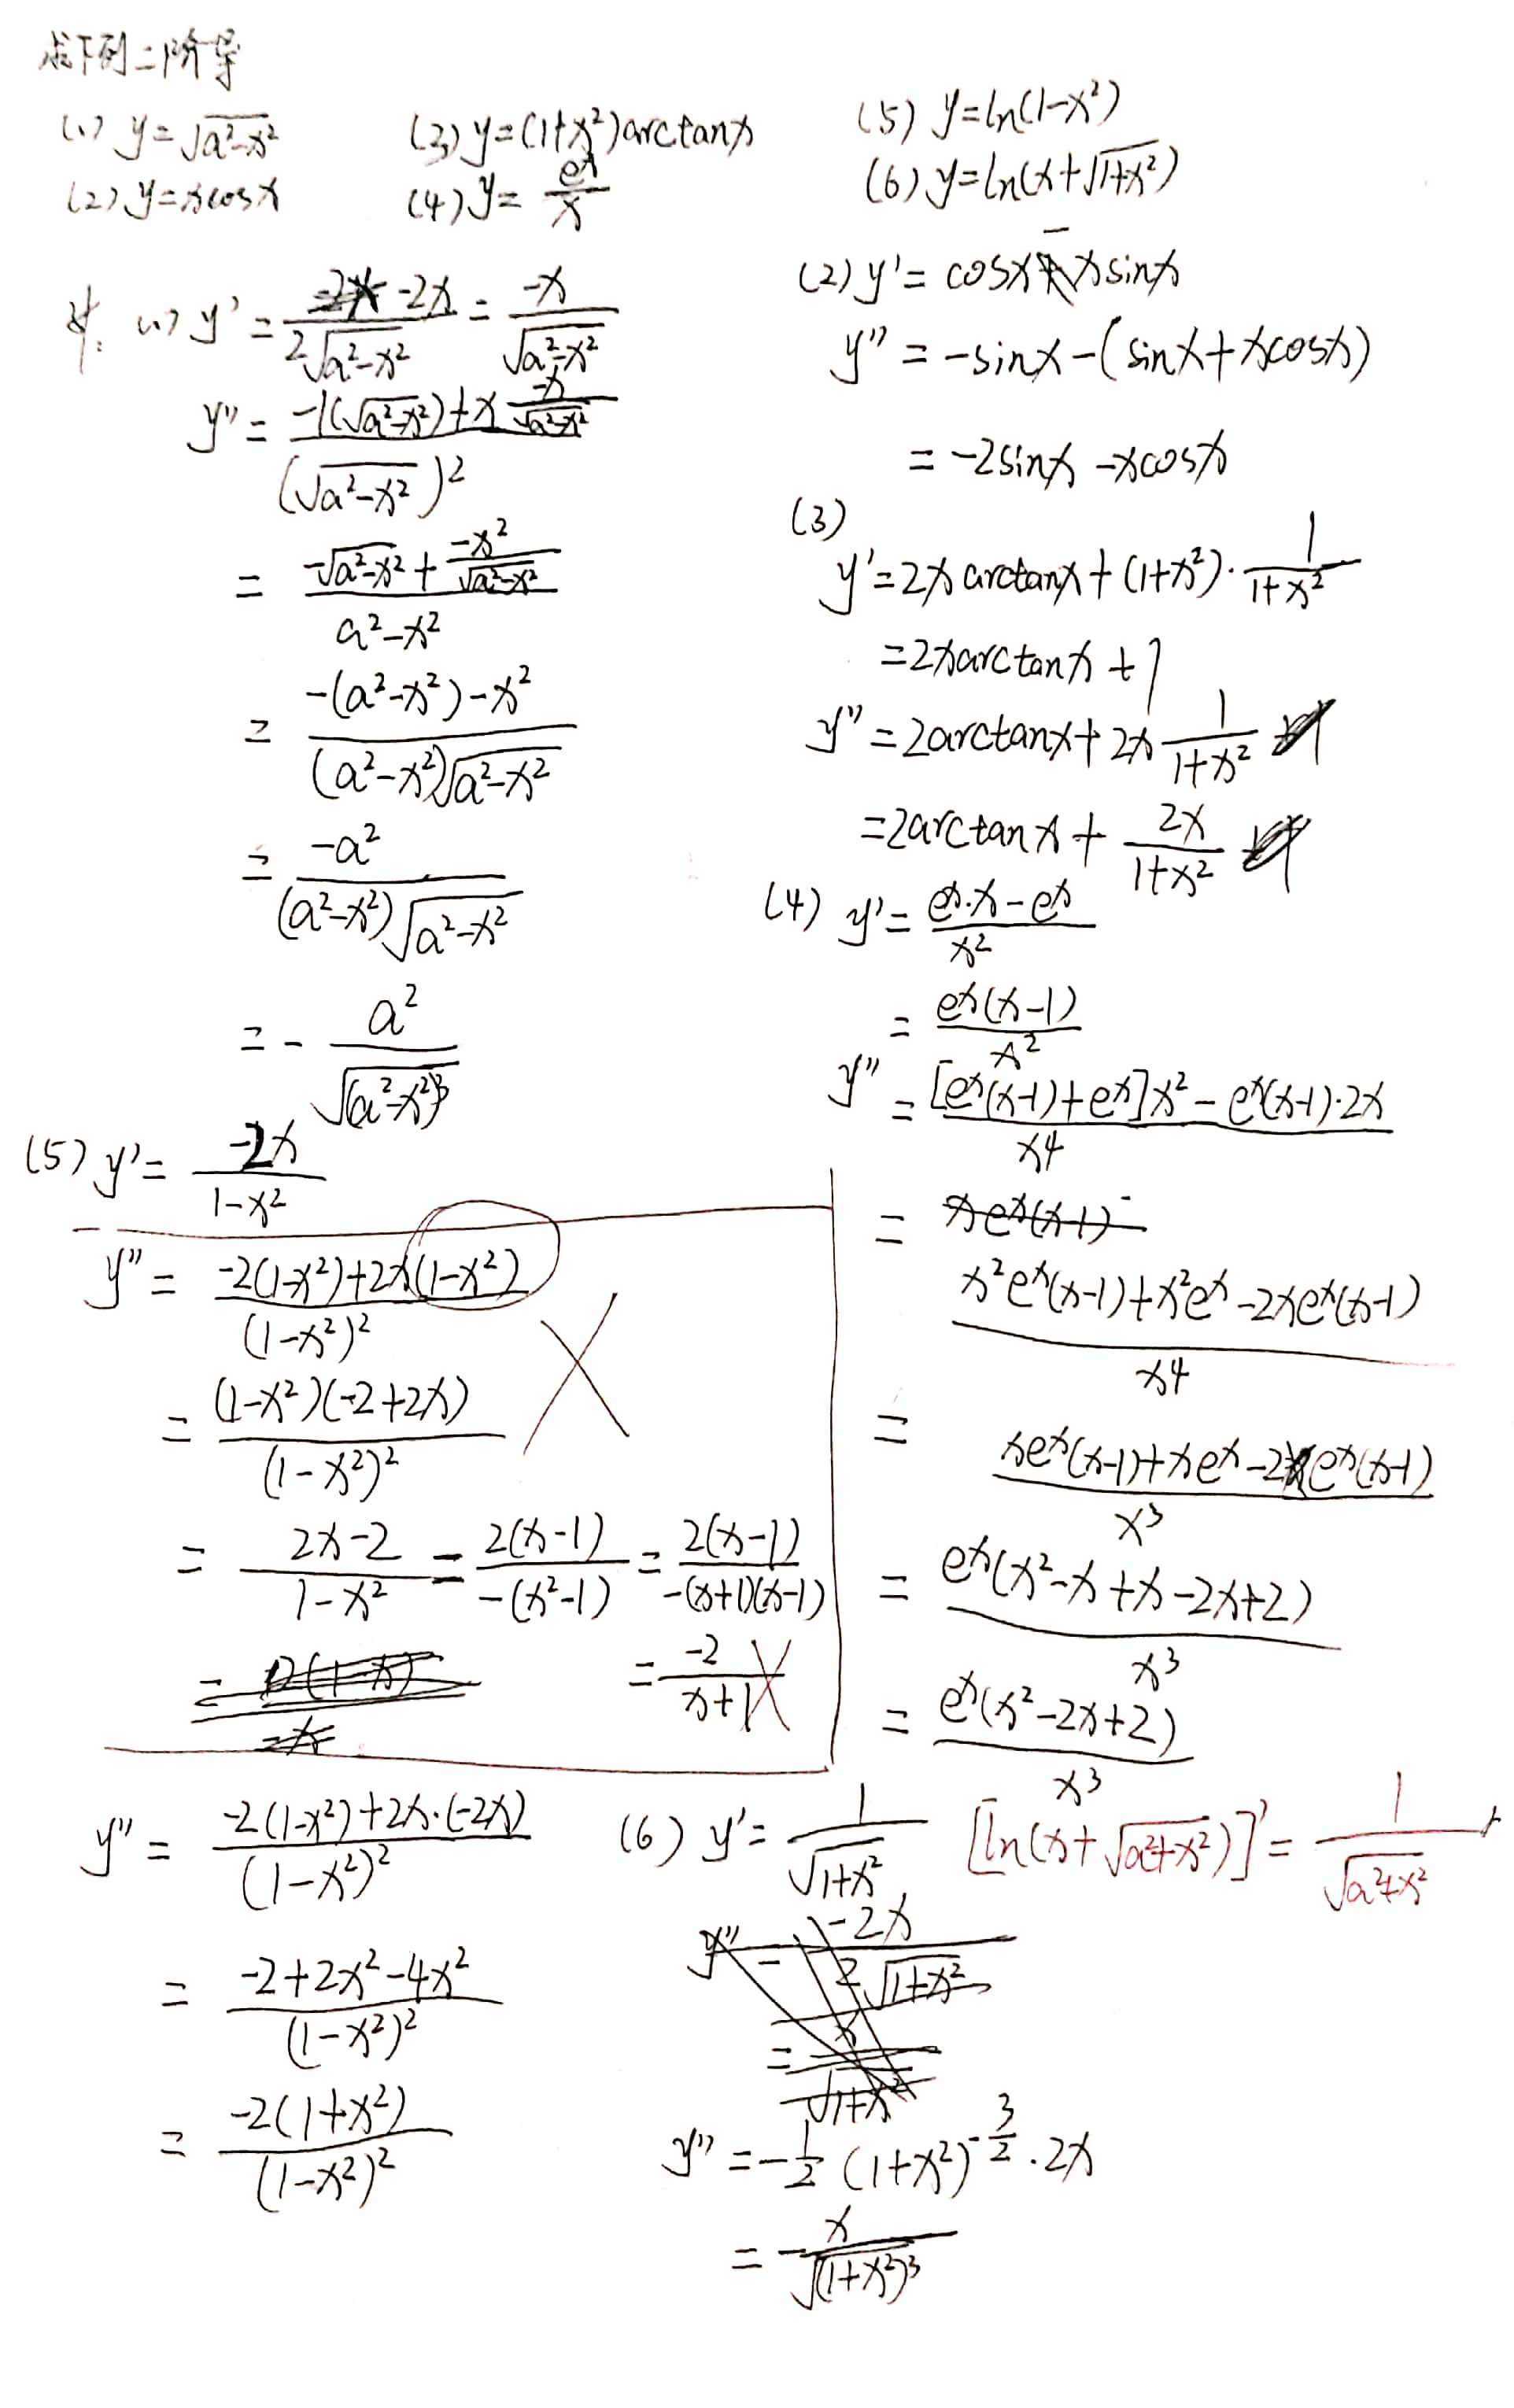 求下列二阶导
(1) y=√(a²-x²)
(2) y=xcosx
(3) y=(1+x²)arctanx
(4) y= e^x/x
(5) y=ln(1-x²)
(6) y=ln(x+√(1+x²))
解: (1) y' = -2x/(2√(a²-x²)) = -x/√(a²-x²)
y'' = [-1(√(a²-x²))+x·(-x/√(a²-x²))]/(√(a²-x²))²
= [-√(a²-x²) + (-x²/√(a²-x²))]/(a²-x²)
= [-(a²-x²)-x²]/[(a²-x²)√(a²-x²)]
= -a²/[(a²-x²)√(a²-x²)]
= - a²/√((a²-x²)³)
(2) y' = cosx - xsinx
y'' = -sinx-(sinx+xcosx)
= -2sinx -xcosx
(3)
y'=2x arctanx + (1+x²)· 1/(1+x²)
=2xarctanx +1
y''=2arctanx+2x 1/(1+x²)
=2arctanx + 2x/(1+x²)
(4) y'= (e^x·x-e^x)/x²
= e^x(x-1)/x²
y'' = {[e^x(x-1)+e^x]x² - e^x(x-1)·2x}/x⁴
= xe^x(x-1)
[x²e^x(x-1)+x²e^x-2xe^x(x-1)]/x⁴
= [xe^x(x-1)+xe^x-2e^x(x-1)]/x³
= e^x(x²-x+x-2x+2)/x³
= e^x(x²-2x+2)/x³
(5) y'= -2x/(1-x²)
y'' = [-2(1-x²)+2x(1-x²)]/(1-x²)²
= (1-x²)(-2+2x)/(1-x²)²
= (2x-2)/(1-x²) = 2(x-1)/(-(x²-1)) = 2(x-1)/(-(x+1)(x-1))
= -2/(x+1)
y'' = [-2(1-x²)+2x·(-2x)]/(1-x²)²
= (-2+2x²-4x²)/(1-x²)²
= -2(1+x²)/(1-x²)²
(6) y'= 1/√(1+x²) [ln(x+√(a²+x²))]'= 1/√(a²+x²)
y'' = -2x/(2√(1+x²))
= x/√(1+x²)
y'' = -1/2 (1+x²)^(-3/2) ·2x
= - x/√((1+x²)³)